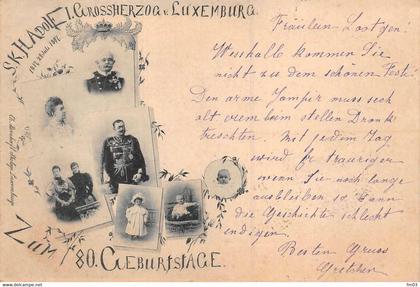 S.K.H. ADOLF I. GROSSHERZOG v. LUXEMBURG.
ZUM 80. GEBURTSTAGE.
Fräulein Lostgen!
Wesshalb kommen Sie
nicht zu dem schönen Fest.
Den arme Jampir muss sech
alt erem beim stellen Dronk
treschten. Mit jedem Tag
wird Er trauriger
wenn Sie noch lange
ausbleiben so kann
die Geschichte schlecht
endigen.
Besten Gruss
Gretchen
fm03